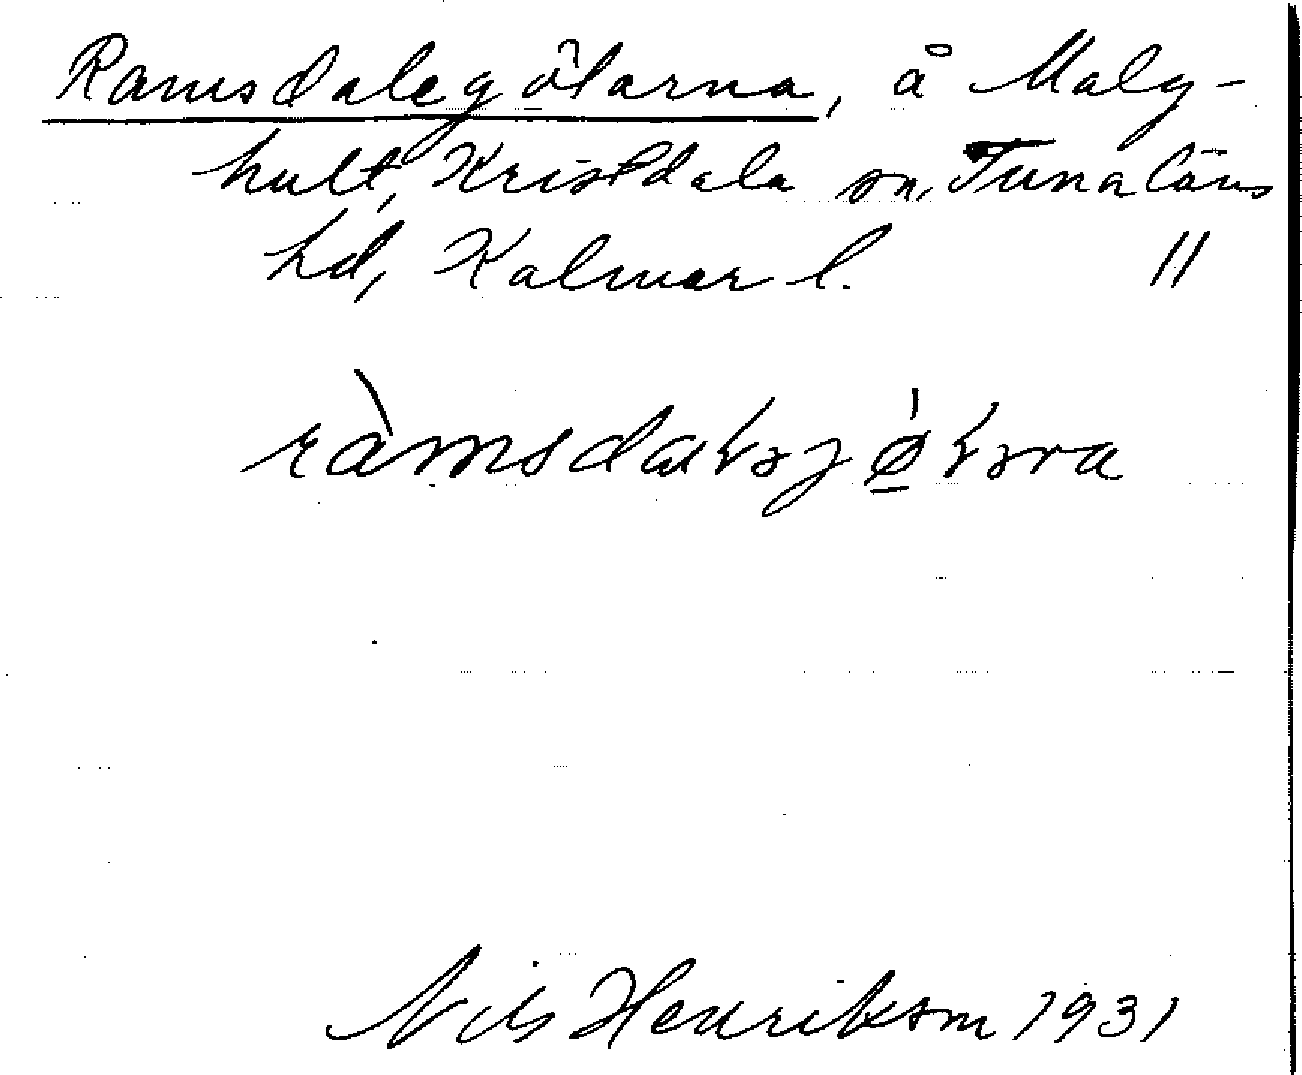 Ramsdalegölarna, å Malg-
hult, Kristdala sn, Tunaläns
hd, Kalmar l. 11
Nils Henrikson 1931